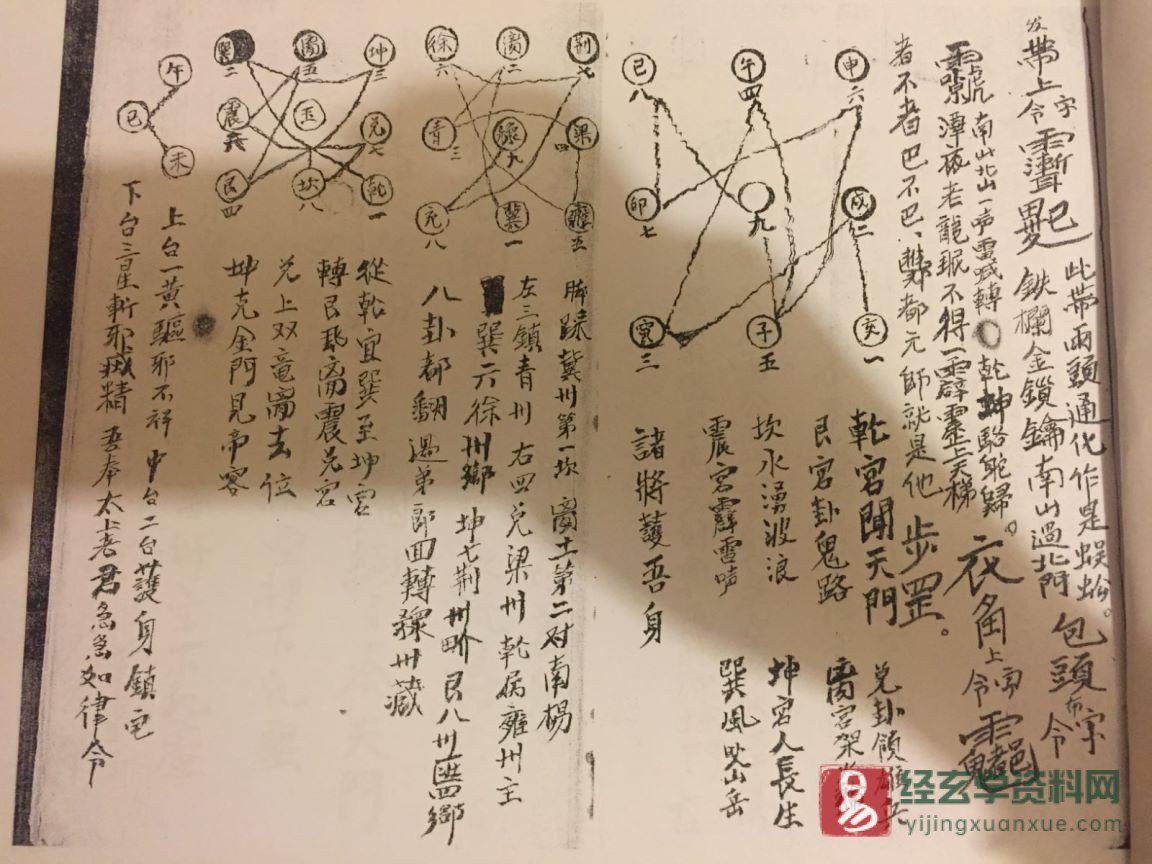 带上令字
巳
此带两頭通化作是蜈蚣。
鉄欄金鎖鑰南山過北門
包頭布令字
南山北山一声雷
乾坤駱駝歸。
潭
老龍
不得一霹靂上天梯
衣角上令字
者不者巴不巴、
都元帥就是他
步罡。
乾宮聞天門
兌卦領雄兵
艮宮卦鬼路
离宮架
坎水湧波浪
坤宮人長生
震宮霹雷声
巽風吹山岳
諸將護吾身
申六
午四
巳八
戌二
九
卯七
亥一
子五
寅三
脚踩冀州第一坎
离土第二对南楊
左三鎮青州
右四兌梁州乾
雍州主
巽六徐州鄉
坤七荆州
艮八州
鄉
八卦都翻過弟郎面轉豫州藏
荆七
二
徐六
梁四
豫九
青三
雍五
冀一
兖八
從乾宜巽至坤宮
轉艮
离震兌宮
兌上双竜离去位
坤克金門見帝客
坤三
离五
巽二
兌七
玉
震六
乾一
坎八
艮四
午
巳
未
上台一黄驅邪不祥中台二台護身鎮宅
下台三星斬邪滅精吾奉太上老君急急如律令
易
经玄学资料网
yijingxuanxue.com